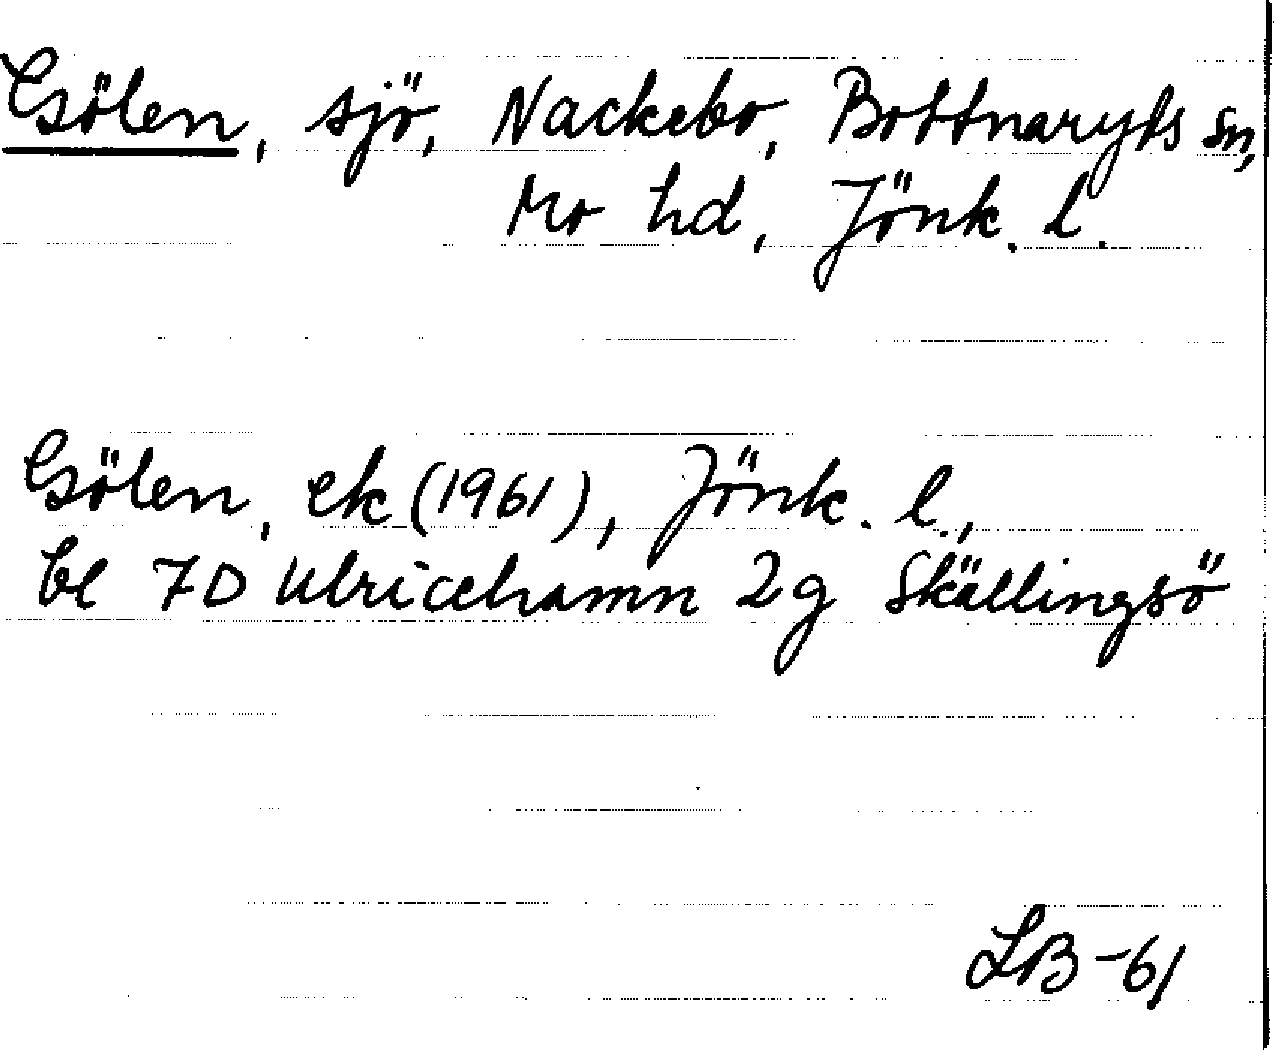 Gölen, sjö, Nackebo, Bottnaryds sn,
Mo hd, Jönk. l.
Gölen, ek (1961), Jönk. l.,
bl 7D Ulricehamn 2g Skällingsö
LB -61